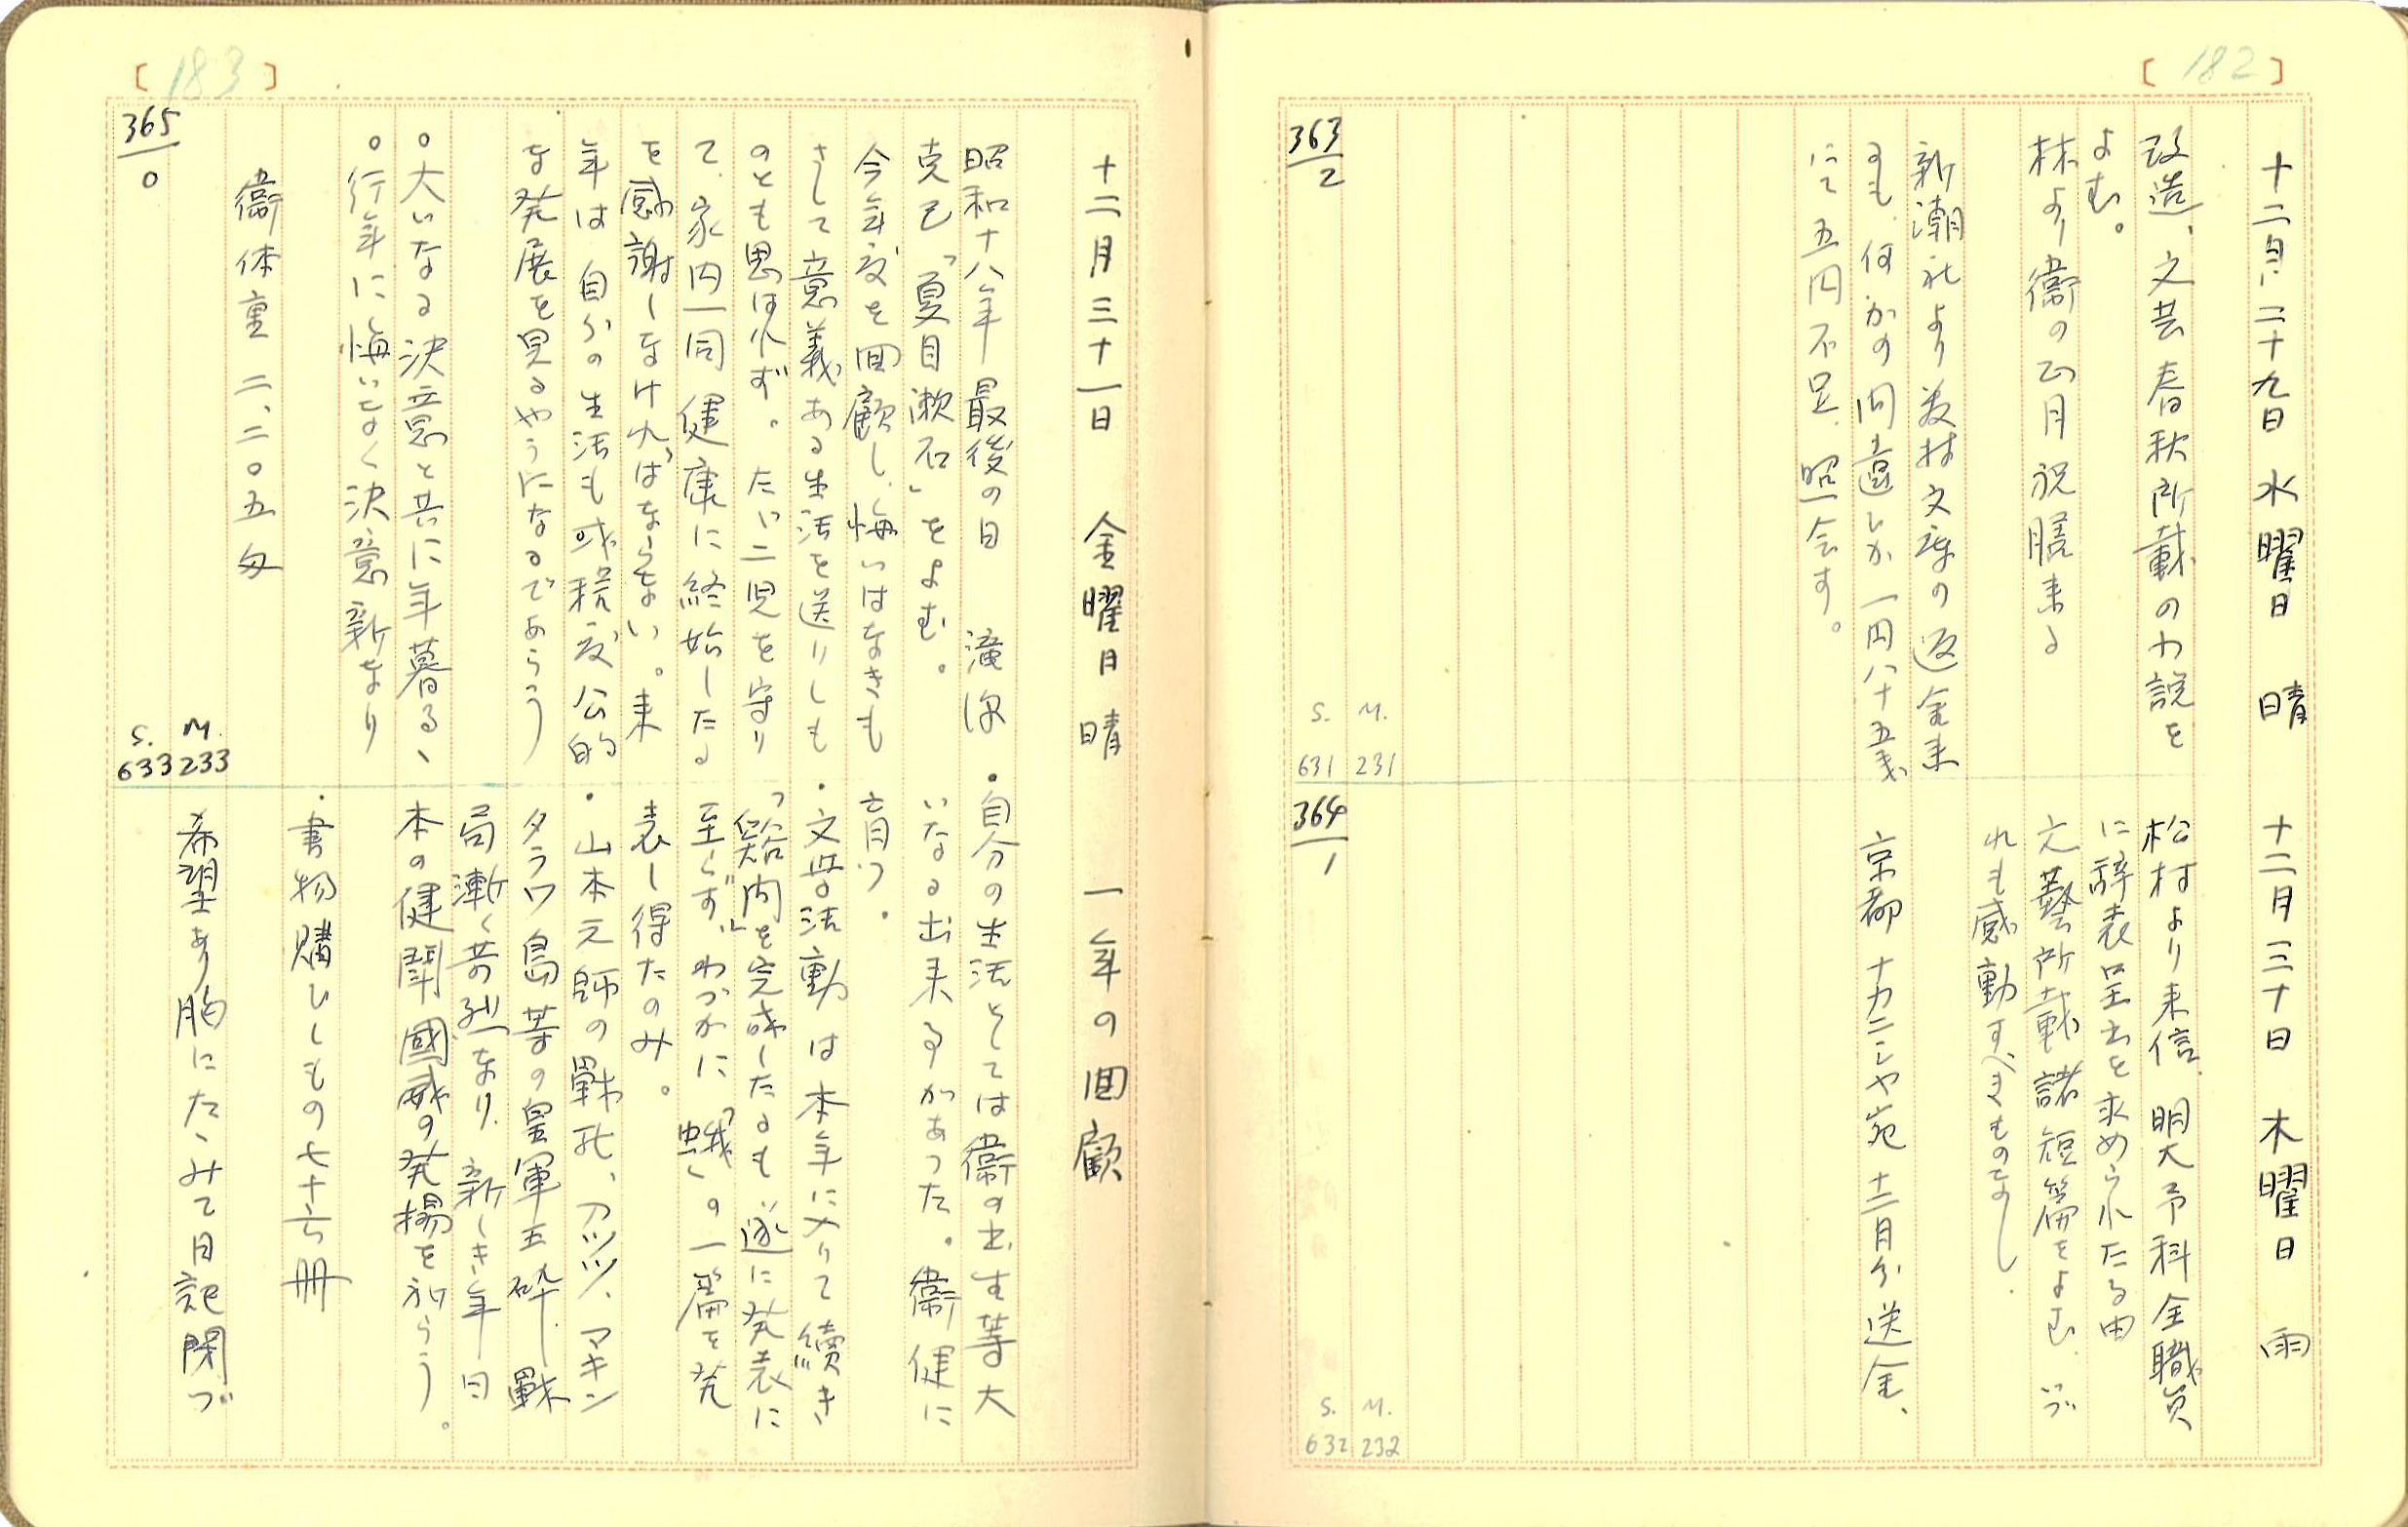 [182]
十二月二十九日 水曜日 晴
改造、文芸春秋所載の小説を
よむ。
林より衞の正月祝膳来る
新潮社より農村文庫の返金来
るも、何かの間違しか一円八十五銭
にて五円不足、照会す。
363/2
S. M.
631 231
十二月三十日 木曜日 雨
松村より来信、明大予科全職員
に辞表呈出を求められたる由
文藝所載諸短篇をよむ、いづ
れも感動すべきものなし、
京都 十カニシヤ宛 十二月分送金、
364/1
S. M.
632 232
[183]
十二月三十一日 金曜日 晴
昭和十八年 最後の日 滝沢
克己「夏目漱石」をよむ。
今年度を回顧し、悔いはなきも
さして意義ある生活を送りしも
のとも思はれず。たゞ二児を守り
て、家内一同健康に終始したる
を感謝しなければならない。来
年は自分の生活も或程度公的
な発展を見るやうになるであらう
○大いなる決意と共に年暮るゝ
○行年に悔いなく決意新なり
衞体重 二、二〇五匁
365/0
S. M.
633 233
一年の回顧
・自分の生活としては衞の出生等大
いなる出来事があった。衞健に
育つ。
・文学活動は本年に入りて續き
「谿間」を完成したるも遂に発表に
至らず、わづかに「蛾」の一篇を発
表し得たのみ。
・山本元帥の戰死、アッツ、マキン
タラワ島等の皇軍玉砕、戰
局漸く苛烈なり、新しき年日
本の健闘國威の発揚を祈らう。
・書物購ひしもの七十六冊
希望あり胸にたゝみて日記閉づ